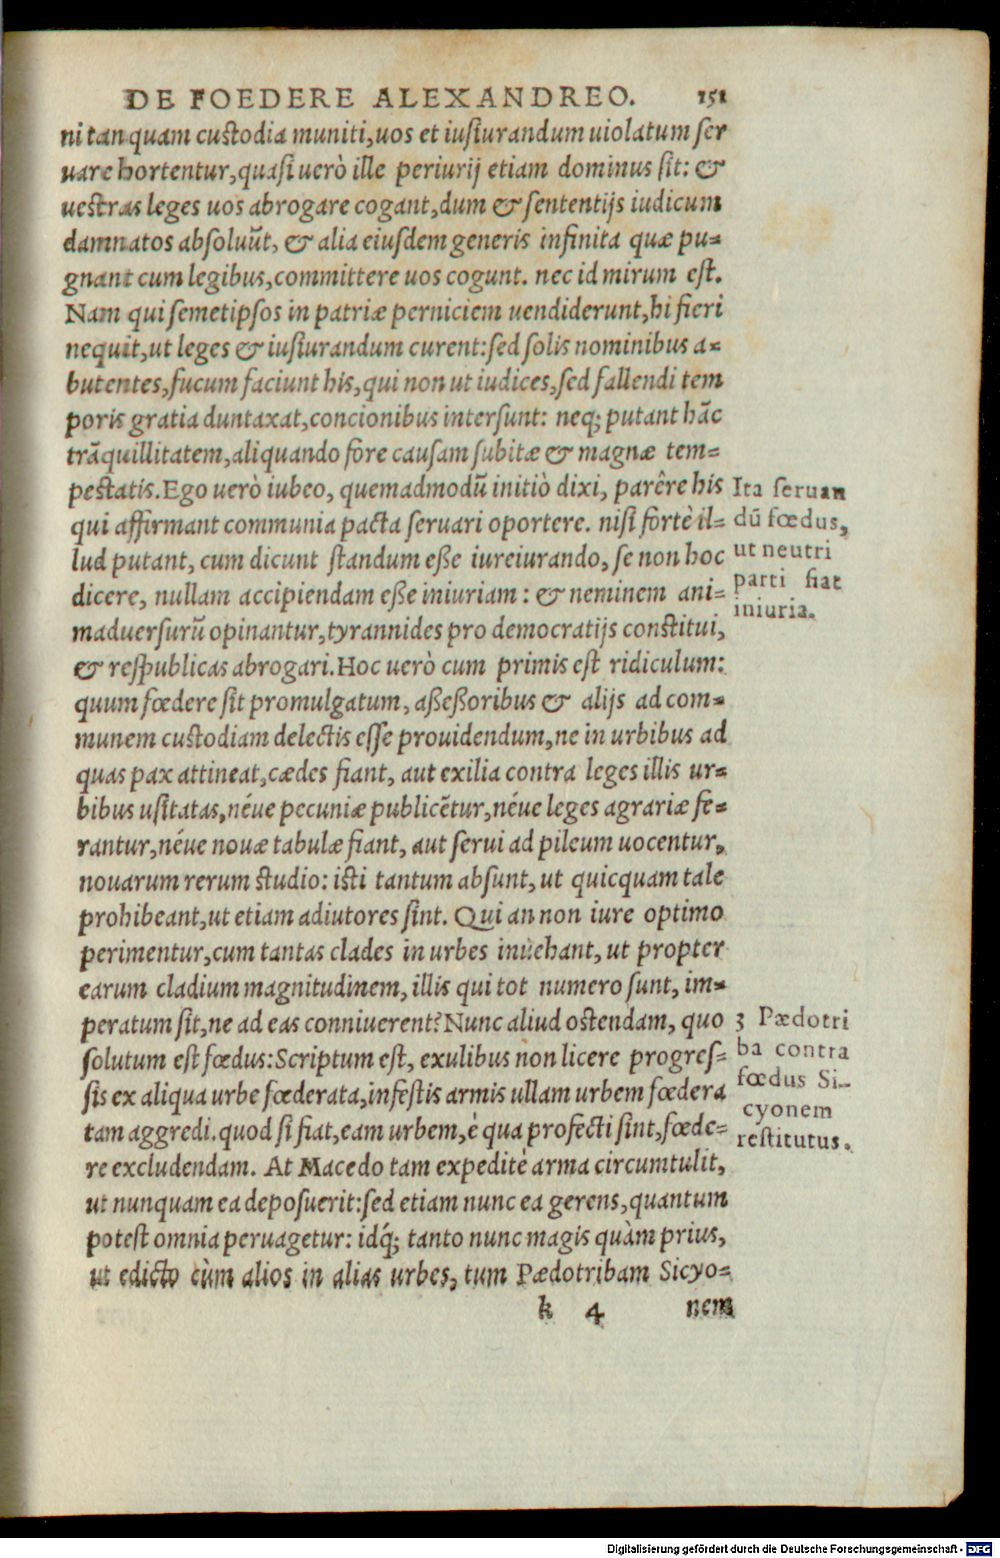 DE FOEDERE ALEXANDREO. 151
ni tanquam custodia muniti, uos et iusiurandum uiolatum ser
uare hortentur, quasi uerò ille periurij etiam dominus sit: &
uestras leges uos abrogare cogant, dum & sententijs iudicum
damnatos absoluũt, & alia eiusdem generis infinita quæ pu-
gnant cum legibus, committere uos cogunt. nec id mirum est.
Nam qui semetipsos in patriæ perniciem uendiderunt, hi fieri
nequit, ut leges & iusiurandum curent: sed solis nominibus a-
butentes, fucum faciunt his, qui non ut iudices, sed fallendi tem
poris gratia duntaxat, concionibus intersunt: neq; putant hãc
trãquillitatem, aliquando fore causam subitæ & magnæ tem-
pestatis. Ego uerò iubeo, quemadmodũ initiò dixi, parêre his
qui affirmant communia pacta seruari oportere. nisi fortè il-
lud putant, cum dicunt standum esse iureiurando, se non hoc
dicere, nullam accipiendam esse iniuriam: & neminem ani-
maduersurũ opinantur, tyrannides pro democratijs constitui,
& respublicas abrogari. Hoc uerò cum primis est ridiculum:
quum fœdere sit promulgatum, assessoribus & alijs ad com-
munem custodiam delectis esse prouidendum, ne in urbibus ad
quas pax attineat, cædes fiant, aut exilia contra leges illis ur-
bibus usitatas, néue pecuniæ publicẽtur, néue leges agrariæ fe-
rantur, néue nouæ tabulæ fiant, aut serui ad pileum uocentur,
nouarum rerum studio: isti tantum absunt, ut quicquam tale
prohibeant, ut etiam adiutores sint. Qui an non iure optimo
perimentur, cum tantas clades in urbes inuehant, ut propter
earum cladium magnitudinem, illis qui tot numero sunt, im-
peratum sit, ne ad eas conniuerent? Nunc aliud ostendam, quo
solutum est fœdus: Scriptum est, exulibus non licere progres-
sis ex aliqua urbe fœderata, infestis armis ullam urbem fœdera
tam aggredi. quod si fiat, eam urbem, è qua profecti sint, fœde-
re excludendam. At Macedo tam expeditè arma circumtulit,
ut nunquam ea deposuerit: sed etiam nunc ea gerens, quantum
potest omnia peruagetur: idq́; tanto nunc magis quàm prius,
ut edicto cùm alios in alias urbes, tum Pædotribam Sicyo-
k 4 nem
Ita seruan
dũ fœdus,
ut neutri
parti fiat
iniuria.
3 Pædotri
ba contra
fœdus Si-
cyonem
restitutus.
Digitalisierung gefördert durch die Deutsche Forschungsgemeinschaft - DFG